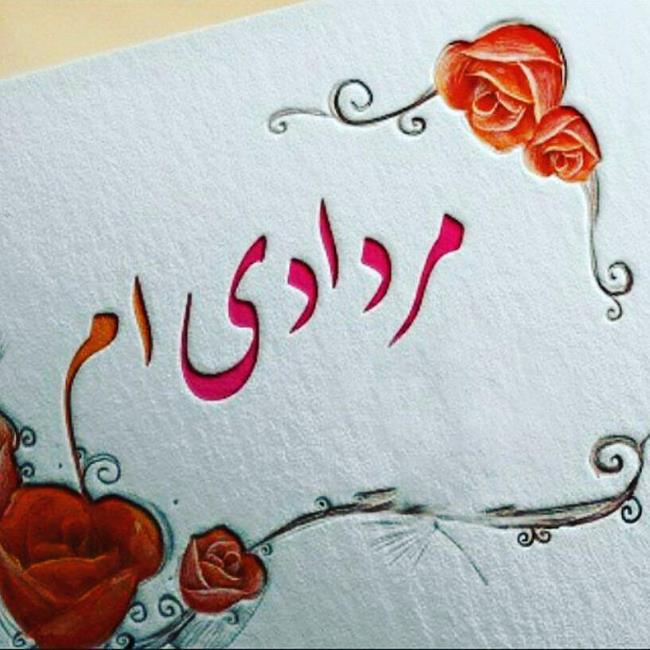 مردادی ام